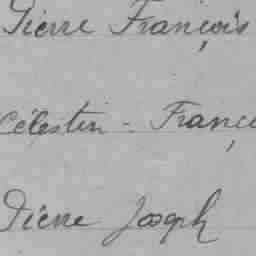 Pierre François
Célestin - Franç
Pierre Joseph